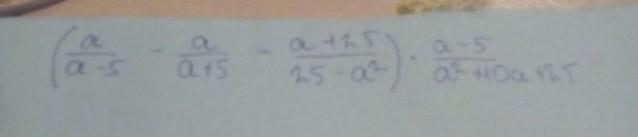 (a/(a-5) - a/(a+5) - (a+25)/(25-a²)) · (a-5)/(a²+10a+25)